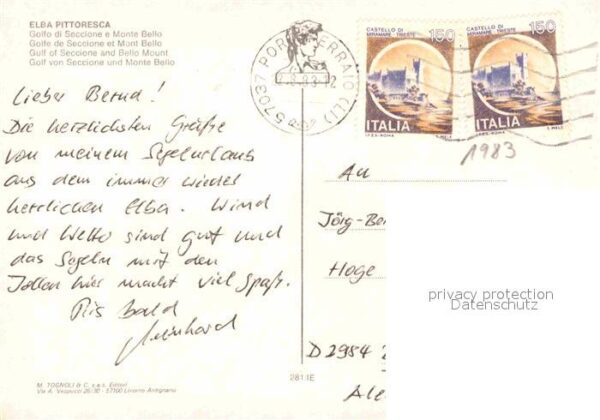 ELBA PITTORESCA
Golfo di Seccione e Monte Bello
Golfe de Seccione et Mont Bello
Gulf of Seccione and Bello Mount
Golf von Seccione und Monte Bello
Lieber Bernd!
Die herzlichsten Grüße
von meinem Segelurlaub
aus dem immer wieder
herrlichen Elba. Wind
und Wetter sind gut und
das Segeln mit den
Jollen hier macht viel Spaß.
Bis bald
M. TOGNOLI & C. s.a.s. Editori
Via A. Vespucci 26/30 - 57100 Livorno Antignano
281.IE
57037 PORTOFERRAIO (LI)
CASTELLO DI
MIRAMARE TRIESTE
150
ITALIA
CASTELLO DI
MIRAMARE TRIESTE
150
ITALIA
1983
An
Jörg-Be
Hoge
privacy protection
Datenschutz
D 2984